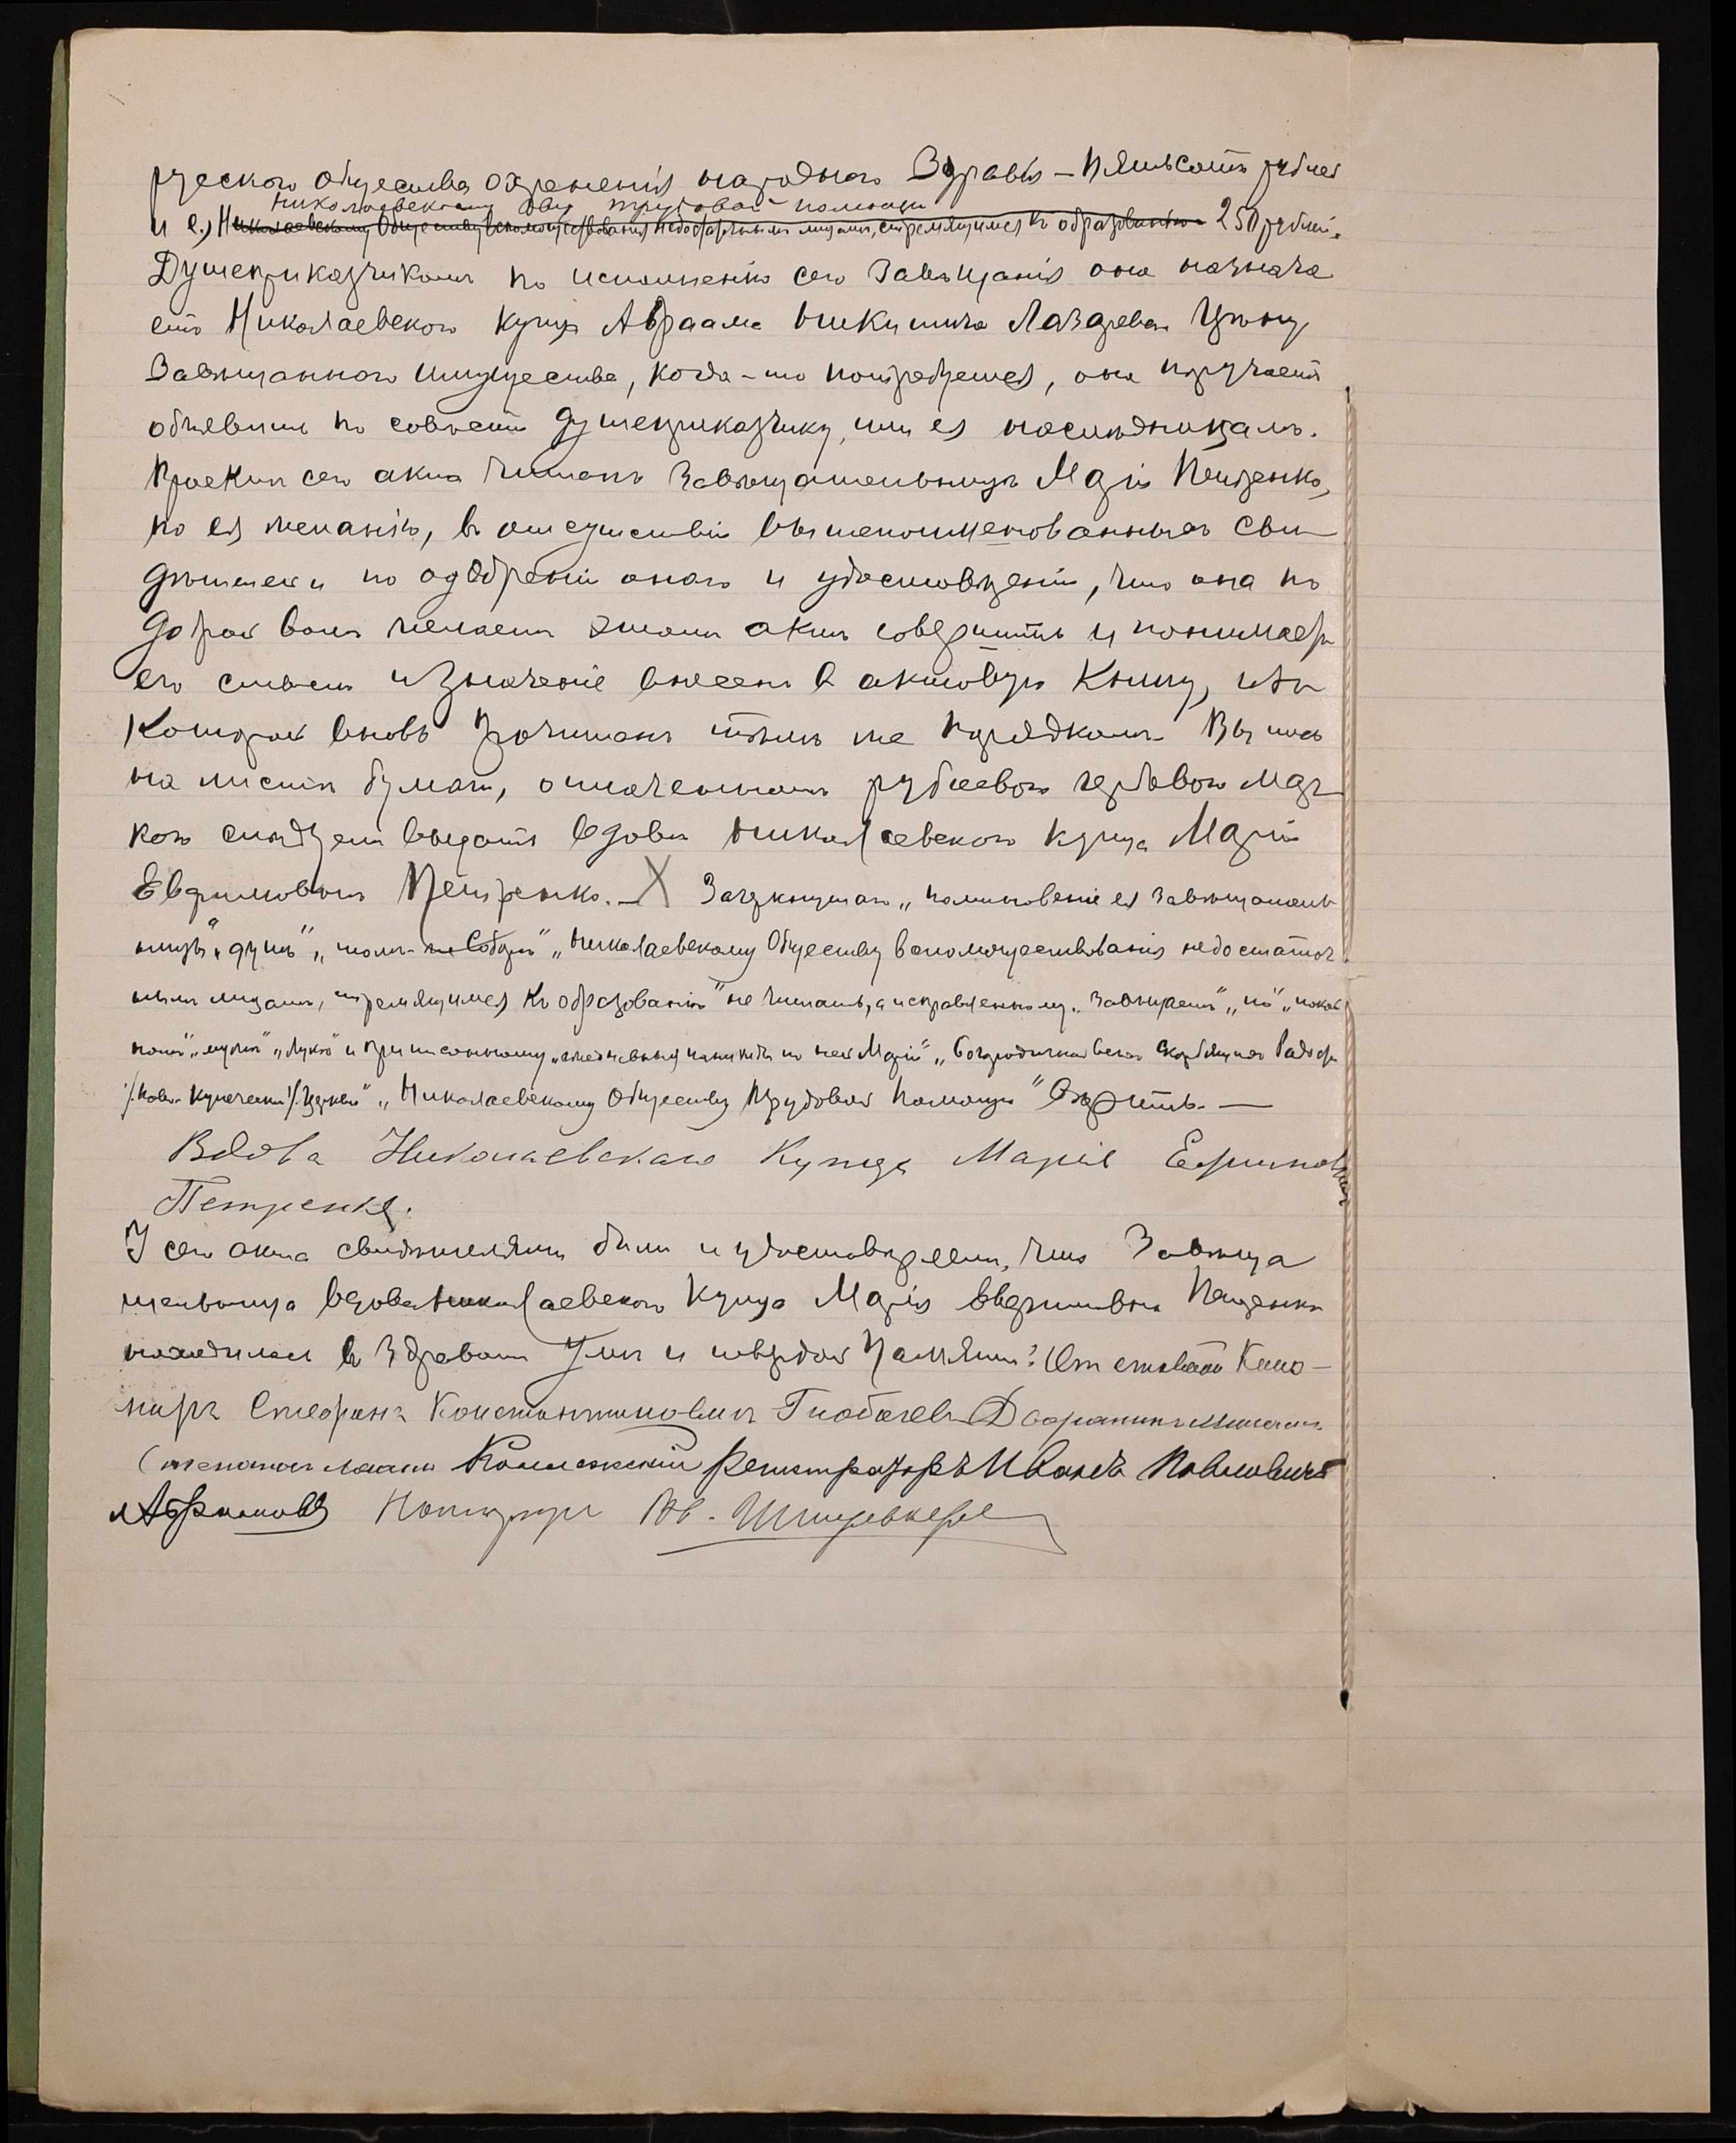 русскаго общества охраненія народнаго Здравія – пятьсотъ рублей
Николаевскому О-ву трудовой помощи
и е.) Николаевскому Обществу вспомоществованія недостаточнымъ лицамъ, стремящимся къ образованію 250 рублей.
Душеприказчикомъ по исполненію сего Завѣщанія она назнача
етъ Николаевскаго купца Авраама Никитича Лазарева Цѣну
Завѣщаннаго имущества, когда-то потребуется, она поручаетъ
объявить по совѣсти душеприказчику, или ея наслѣдникамъ.
Проектъ сего акта читанъ Завѣщательницѣ Маріи Петренко,
по ея желанію, въ отсутствіи вышепоименованныхъ сви
дѣтелей и по одобреніи онаго и удостовѣреніи, что она по
доброй волѣ желаетъ этотъ актъ совершить и понимаетъ
его смыслъ и значеніе внесенъ в актовую книгу, изъ
Которой вновь прочитанъ тѣмъ же порядкомъ. Выпись
на листѣ бумаги, оплаченномъ рублевою гербовою мар
кою слѣдуетъ выдать вдовѣ Николаевскаго купца Маріи
Евфимовнѣ Петренко. – X Зачеркнутаго „поминовеніе ея Завѣщатель
ницы“ „душъ“ „Соборъ“ „Николаевскому Обществу вспомоществованія недостаточ
нымъ лицамъ, стремящимся къ образованію“ не читать, а исправленному „Завѣщаетъ“ „по“
и приписанному „ежедневныя панихиды по ней Маріи“ „Богородичная всехъ Скорбящихъ Радости
купеческая Церкви“ „Николаевскому Обществу Трудовой помощи“ вѣрить. —
Вдова Николаевскаго Купца Марія Ефимовна
Петренко.
У сего акта свидѣтелями были и удостовѣряемъ, что Завѣща
тельница вдова Николаевскаго Купца Марія Евфимовна Петренко
находилась въ здравомъ умѣ и твердой памяти: Отставной Капо-
ниръ Стефанъ Константиновичъ Дворянинъ
Коллежскій Регистраторъ Иванъ Павловичъ
Абрамовъ Нотаріусъ